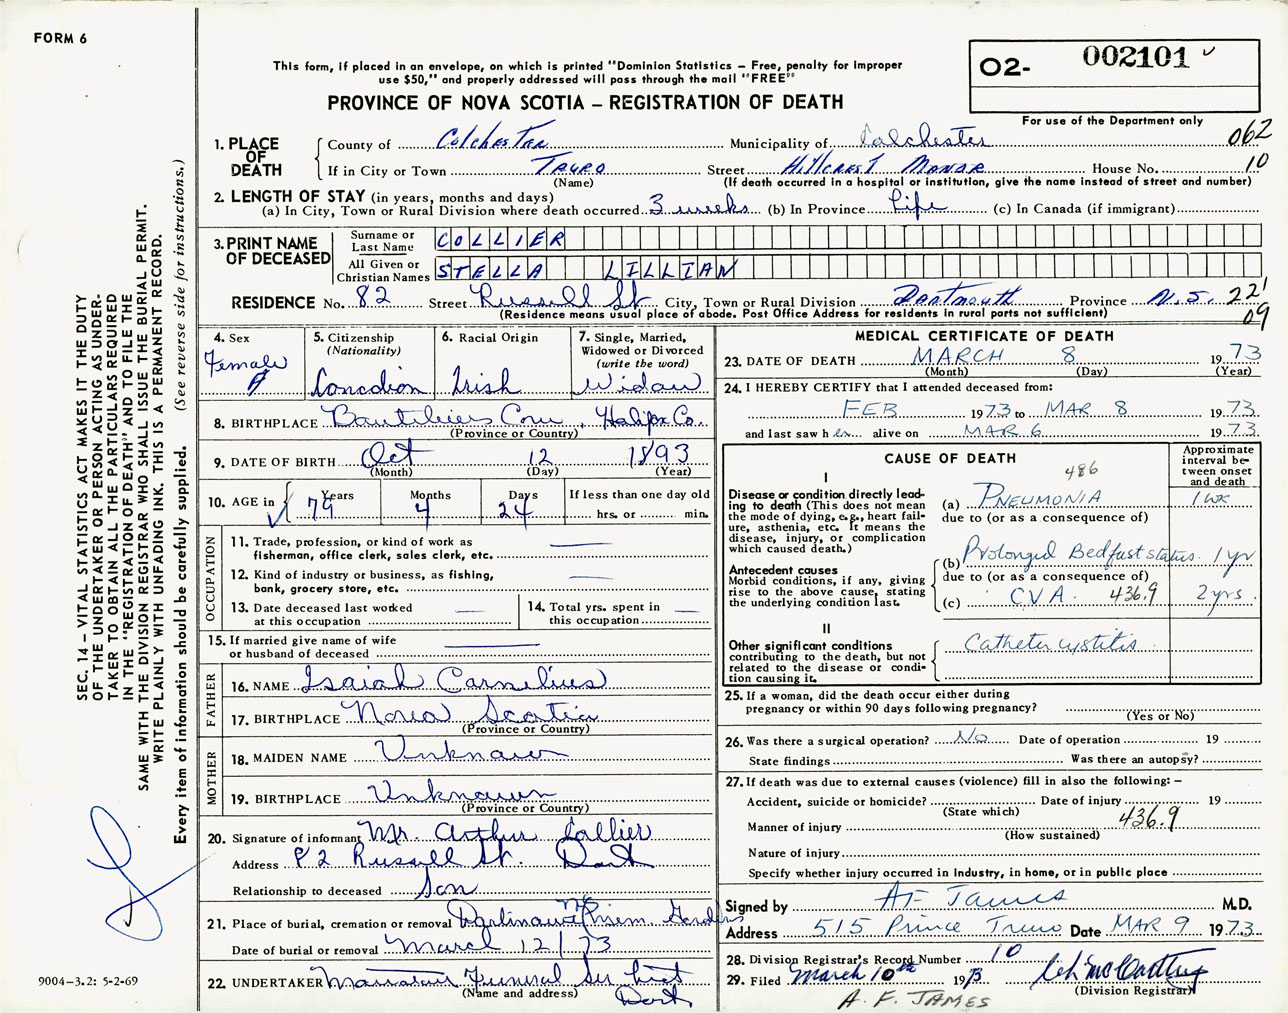 FORM 6
This form, if placed in an envelope, on which is printed "Dominion Statistics — Free, penalty for improper
use $50," and properly addressed will pass through the mail "FREE"
PROVINCE OF NOVA SCOTIA — REGISTRATION OF DEATH
O2- 002101
For use of the Department only
062
10
1. PLACE OF DEATH
County of Colchester Municipality of Colchester
If in City or Town Truro Street Hillcrest Manor House No.
(Name) (If death occurred in a hospital or institution, give the name instead of street and number)
2. LENGTH OF STAY (in years, months and days)
(a) In City, Town or Rural Division where death occurred 3 weeks (b) In Province Life (c) In Canada (if immigrant)
3. PRINT NAME OF DECEASED
Surname or Last Name COLLIER
All Given or Christian Names STELLA LILLIAN
RESIDENCE No. 82 Street Russell St. City, Town or Rural Division Dartmouth Province N.S. 22
(Residence means usual place of abode. Post Office Address for residents in rural parts not sufficient) 09
4. Sex Female
5. Citizenship (Nationality) Canadian
6. Racial Origin Irish
7. Single, Married, Widowed or Divorced (write the word) Widow
8. BIRTHPLACE Halifax Co.
(Province or Country)
9. DATE OF BIRTH Oct 12 1893
(Month) (Day) (Year)
10. AGE in Years 79 Months 4 Days 24 If less than one day old
hrs. or min.
OCCUPATION
11. Trade, profession, or kind of work as
fisherman, office clerk, sales clerk, etc. —
12. Kind of industry or business, as fishing,
bank, grocery store, etc. —
13. Date deceased last worked
at this occupation —
14. Total yrs. spent in
this occupation —
15. If married give name of wife
or husband of deceased —
FATHER
16. NAME Isaiah Cornelius
17. BIRTHPLACE Nova Scotia
(Province or Country)
MOTHER
18. MAIDEN NAME Unknown
19. BIRTHPLACE Unknown
(Province or Country)
20. Signature of informant Mr. Arthur Collier
Address 82 Russell St. Dart
Relationship to deceased Son
21. Place of burial, cremation or removal Mem. Gardens
Date of burial or removal March 12/73
22. UNDERTAKER Funeral Ser
(Name and address) Dart
MEDICAL CERTIFICATE OF DEATH
23. DATE OF DEATH MARCH 8 1973
(Month) (Day) (Year)
24. I HEREBY CERTIFY that I attended deceased from:
FEB 1973 to MAR 8 1973
and last saw her alive on MAR 6 1973
CAUSE OF DEATH
Approximate interval between onset and death
486
I
Disease or condition directly leading to death (This does not mean the mode of dying, e.g., heart failure, asthenia, etc. It means the disease, injury, or complication which caused death.)
(a) PNEUMONIA 1 wk
due to (or as a consequence of)
Antecedent causes
Morbid conditions, if any, giving rise to the above cause, stating the underlying condition last.
(b) Prolonged Bedfast status. 1 yr
due to (or as a consequence of)
(c) CVA. 436.9 2 yrs.
II
Other significant conditions contributing to the death, but not related to the disease or condition causing it.
Catheter cystitis
25. If a woman, did the death occur either during
pregnancy or within 90 days following pregnancy?
(Yes or No)
26. Was there a surgical operation? No Date of operation 19
State findings Was there an autopsy?
27. If death was due to external causes (violence) fill in also the following: —
Accident, suicide or homicide? Date of injury 19
(State which) 436.9
Manner of injury
(How sustained)
Nature of injury
Specify whether injury occurred in industry, in home, or in public place
Signed by A F James M.D.
Address 515 Prince Truro Date MAR 9 1973.
28. Division Registrar's Record Number 10
29. Filed March 10th 1973
(Division Registrar)
A. F. JAMES
SEC. 14 — VITAL STATISTICS ACT MAKES IT THE DUTY
OF THE UNDERTAKER OR PERSON ACTING AS UNDER-
TAKER TO OBTAIN ALL THE PARTICULARS REQUIRED
IN THE "REGISTRATION OF DEATH" AND TO FILE THE
SAME WITH THE DIVISION REGISTRAR WHO SHALL ISSUE THE BURIAL PERMIT.
WRITE PLAINLY WITH UNFADING INK. THIS IS A PERMANENT RECORD.
Every item of information should be carefully supplied. (See reverse side for instructions.)
9004-3.2: 5-2-69